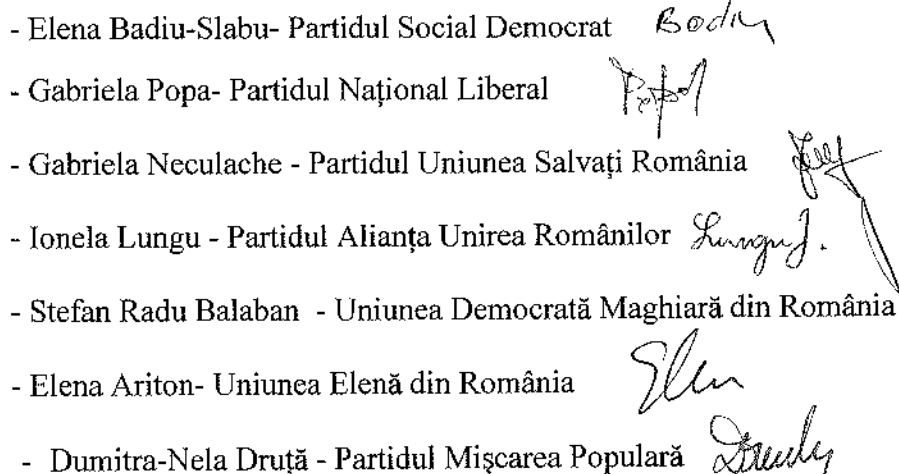 - Elena Badiu-Slabu- Partidul Social Democrat Badiu
- Gabriela Popa- Partidul Național Liberal Popa
- Gabriela Neculache - Partidul Uniunea Salvați România
- Ionela Lungu - Partidul Alianța Unirea Românilor Lungu I.
- Stefan Radu Balaban - Uniunea Democrată Maghiară din România
- Elena Ariton- Uniunea Elenă din România
- Dumitra-Nela Druță - Partidul Mișcarea Populară